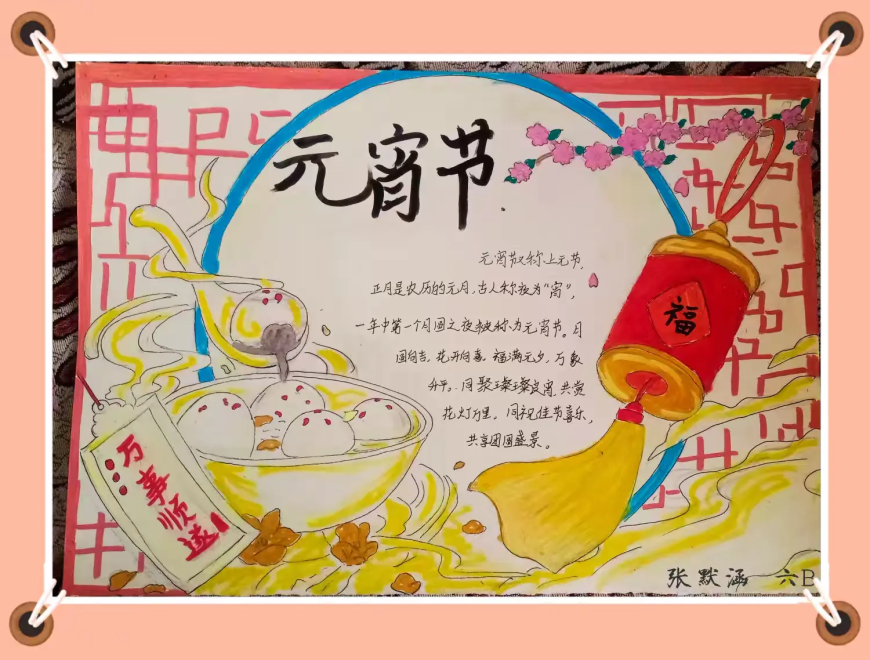 元宵节
元宵节又称上元节，
正月是农历的元月，古人称夜为“宵”，
一年中第一个月圆之夜被称为元宵节。月
圆向吉，花开向喜，福满元夕，万象
升平。同聚璀璨良宵，共赏
花灯万里，同祝佳节喜乐，
共享团圆盛景。
福
万事顺遂
张默涵 六B